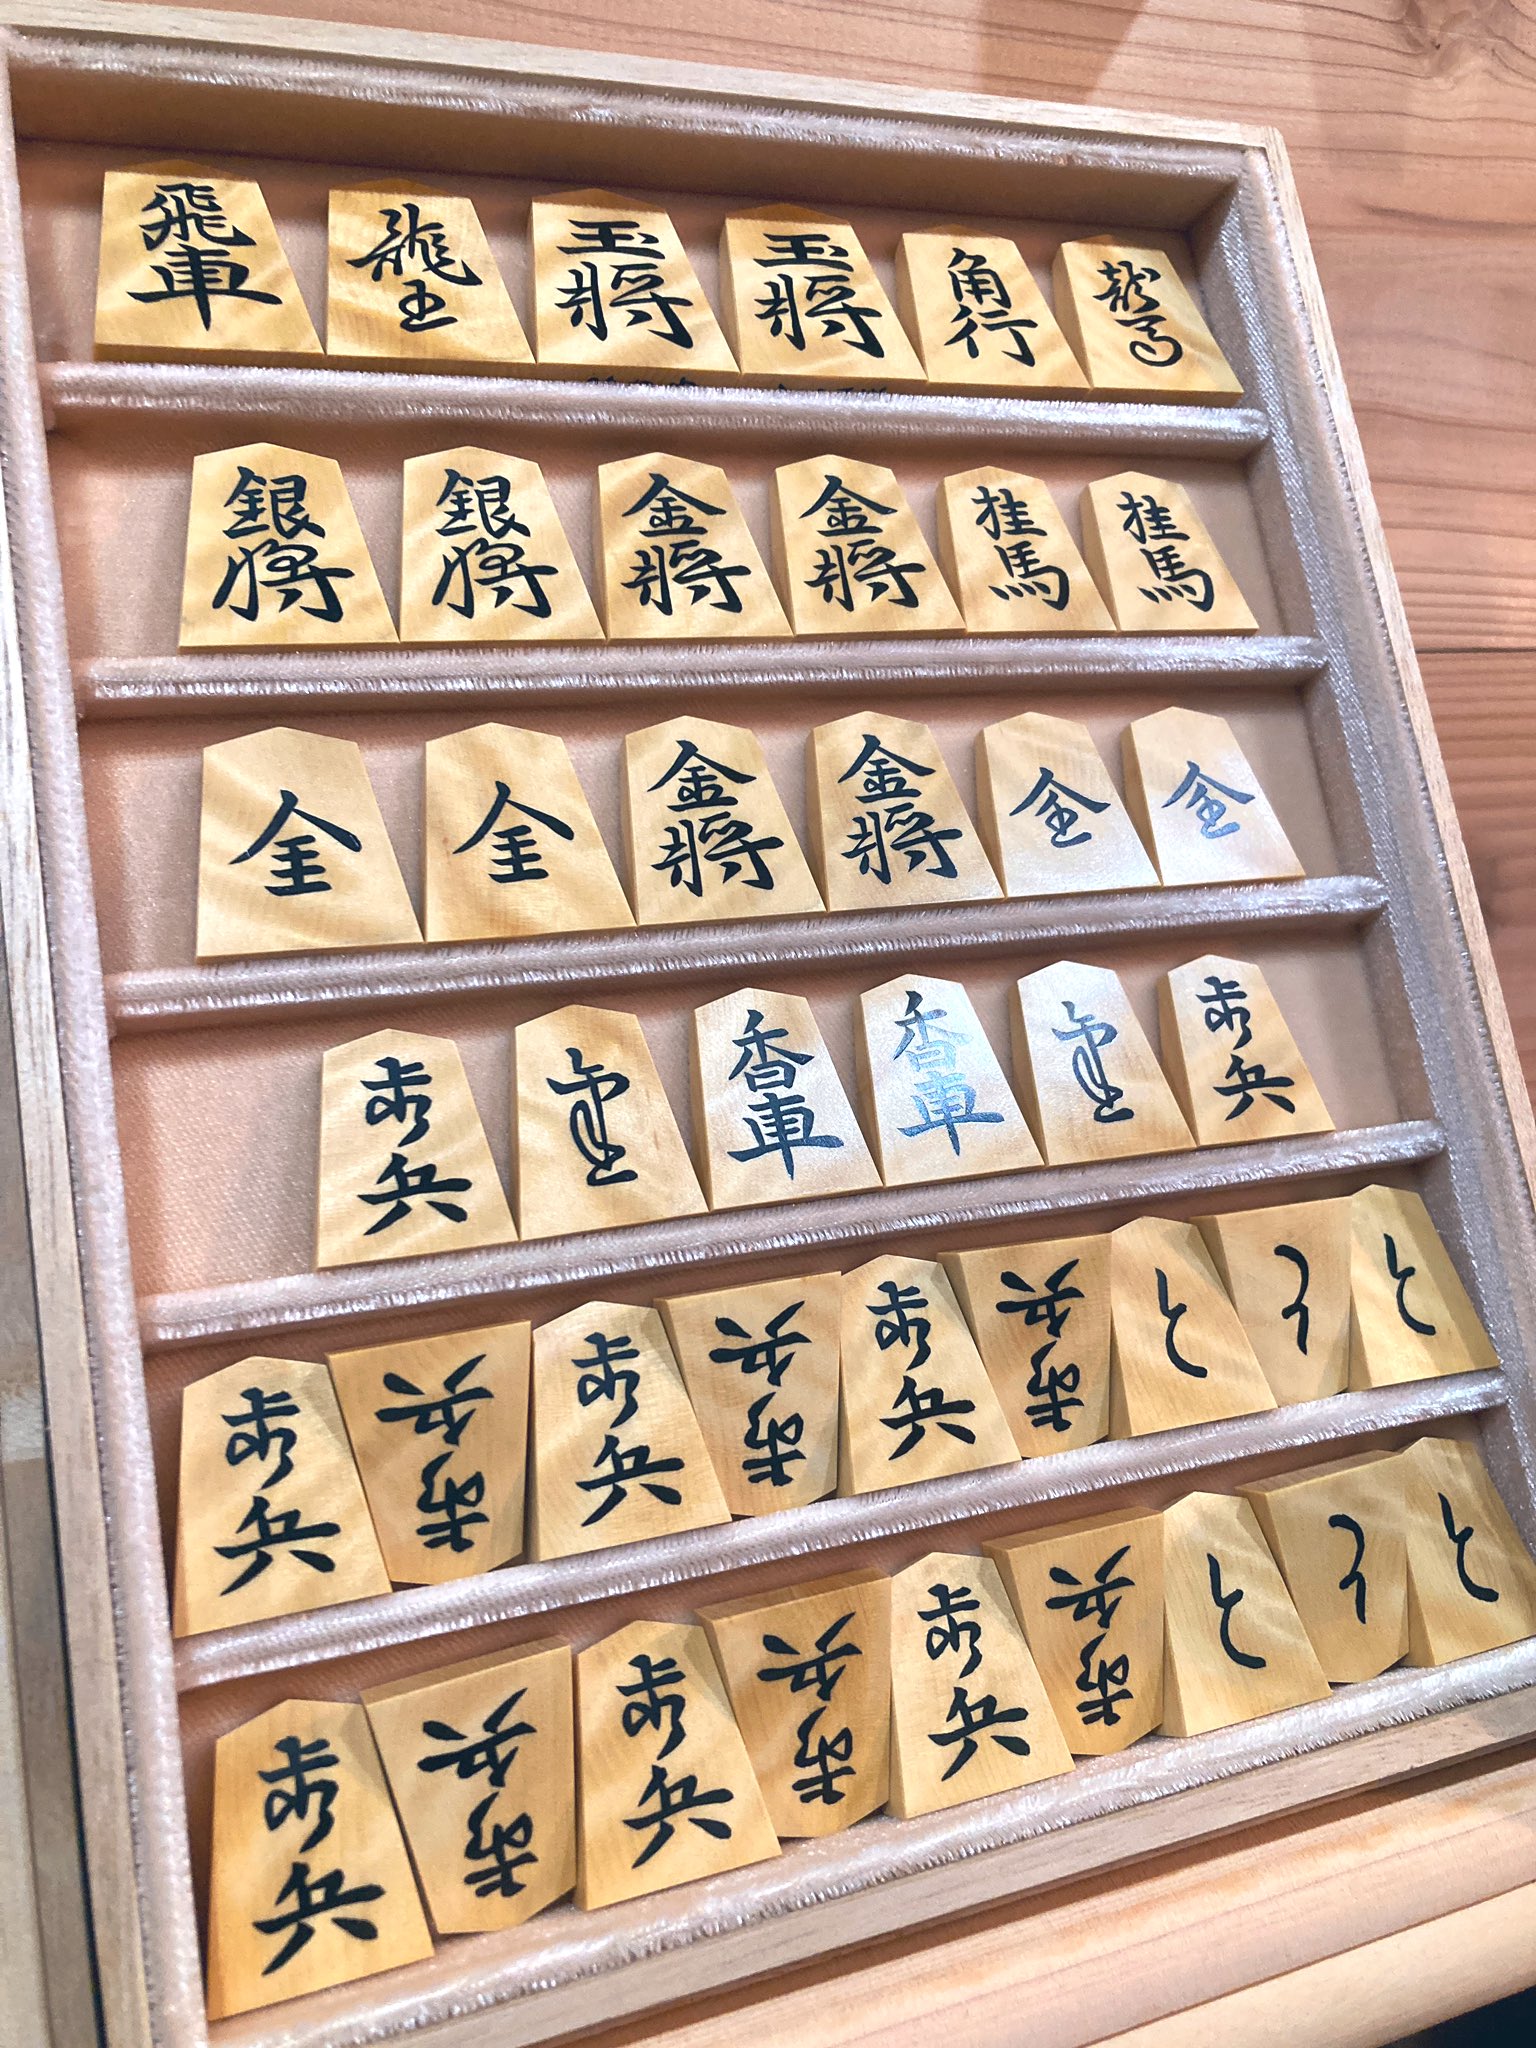 飛車 龍王 玉將 玉將 角行 龍馬
銀将 銀将 金將 金將 桂馬 桂馬
全 全 金將 金將 全 全
歩兵 香車 香車 歩兵
歩兵 歩兵 歩兵 歩兵 歩兵 歩兵 と と と
歩兵 歩兵 歩兵 歩兵 歩兵 歩兵 と と と